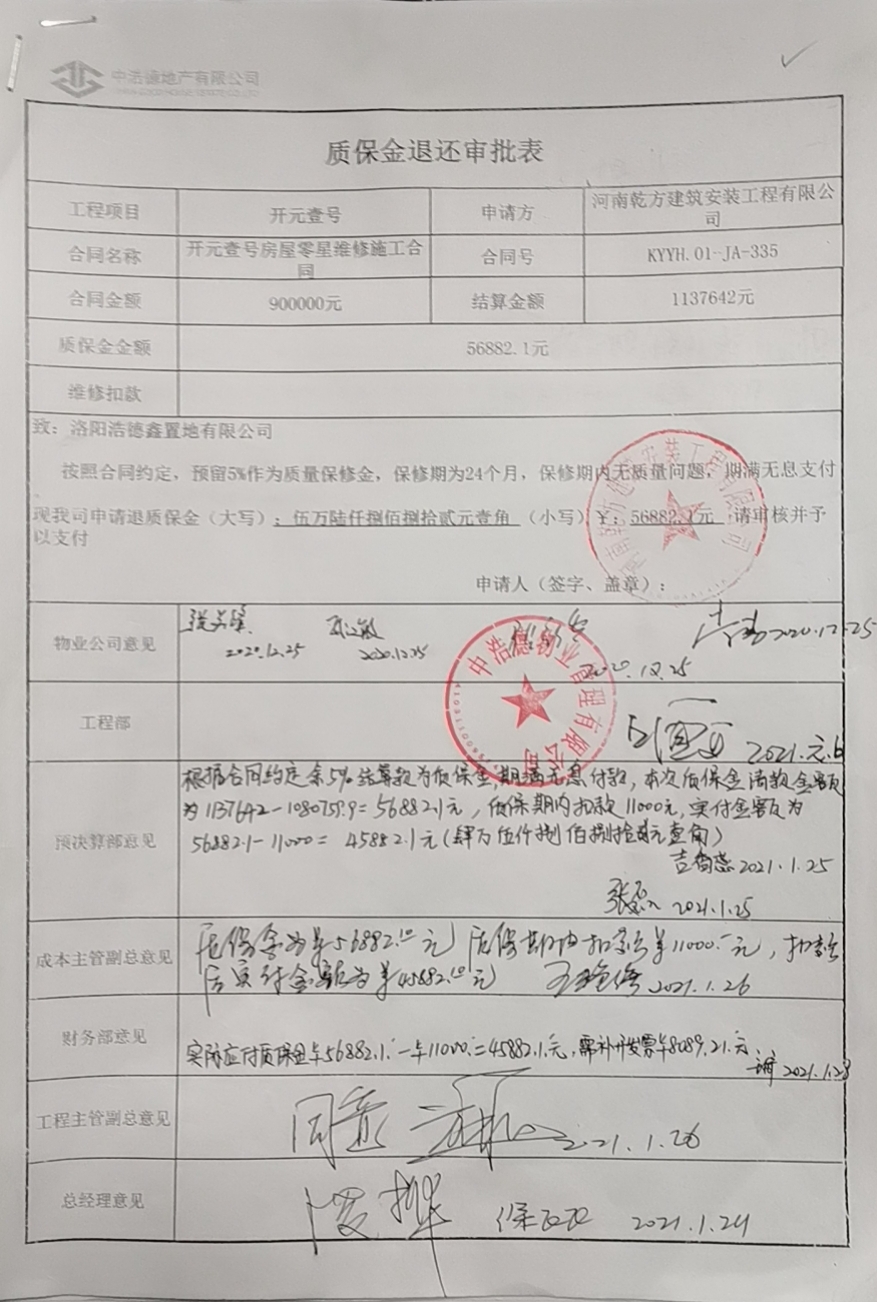 中浩德地产有限公司
质保金退还审批表
工程项目
开元壹号
申请方
河南乾方建筑安装工程有限公
司
合同名称
开元壹号房屋零星维修施工合
同
合同号
KYYH.01-JA-335
合同金额
900000元
结算金额
1137642元
质保金金额
56882.1元
维修扣款
致：洛阳浩德鑫置地有限公司
按照合同约定，预留5%作为质量保修金，保修期为24个月，保修期内无质量问题，期满无息支付
现我司申请退质保金（大写）：伍万陆仟捌佰捌拾贰元壹角（小写）￥：56882.1元 请审核并予
以支付
申请人（签字、盖章）：
物业公司意见
2020.12.25
2020.12.25
2020.12.25
2020.12.25
中浩德物业管理有限公司
工程部
2021.元.6
预决算部意见
根据合同约定余5%结算款为质保金,期满无息付款，本次质保金请款金额
为1137642-1080759.9=56882.1元，质保期内扣款11000元,实付金额为
56882.1-11000= 45882.1元(肆万伍仟捌佰捌拾贰元壹角)
2021.1.25
张磊 2021.1.25
成本主管副总意见
质保金为￥56882.10元 质保期内扣款￥11000.-元，扣款
后实付金额为￥45882.10元 2021.1.26
财务部意见
实际应付质保金￥56882.1.-￥11000.=45882.1.元,需补开发票￥8089.21.元.
2021.1.28
工程主管副总意见
同意 2021.1.26
总经理意见
2021.1.29